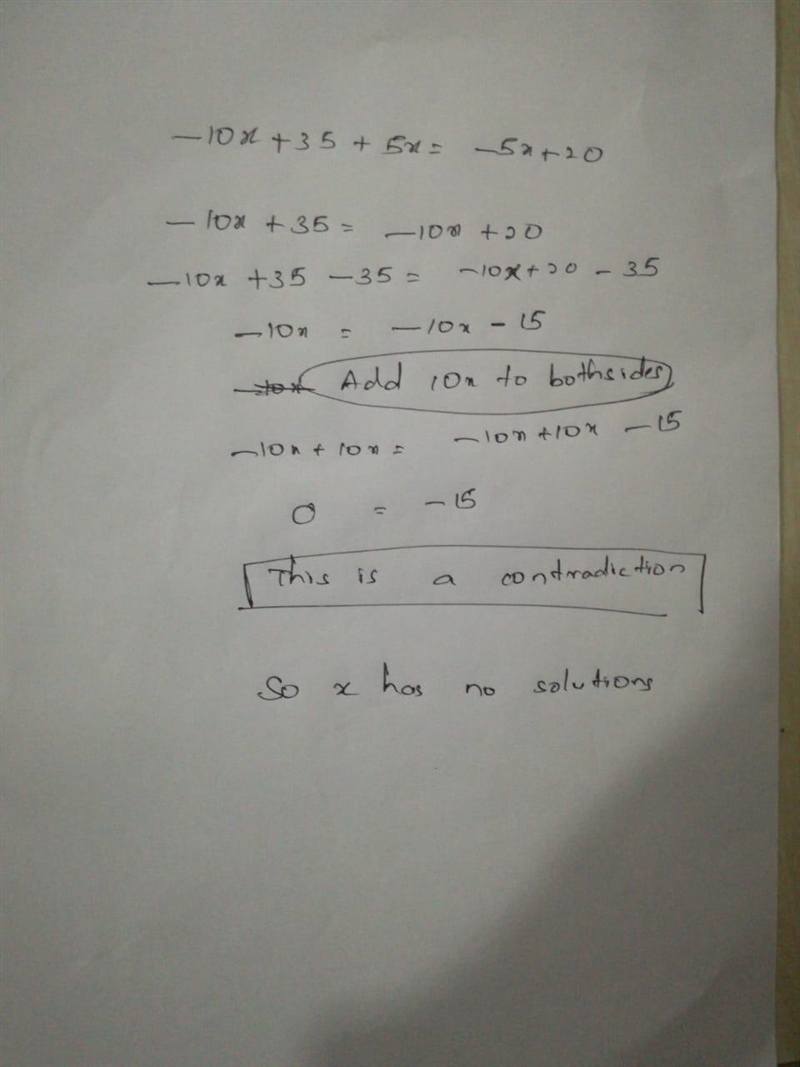 -10x + 35 + 5x = -5x + 20
-10x + 35 = -10x + 20
-10x + 35 - 35 = -10x + 20 - 35
-10x = -10x - 15
Add 10x to bothsides
-10x + 10x = -10x + 10x - 15
0 = -15
This is a contradiction
So x has no solutions